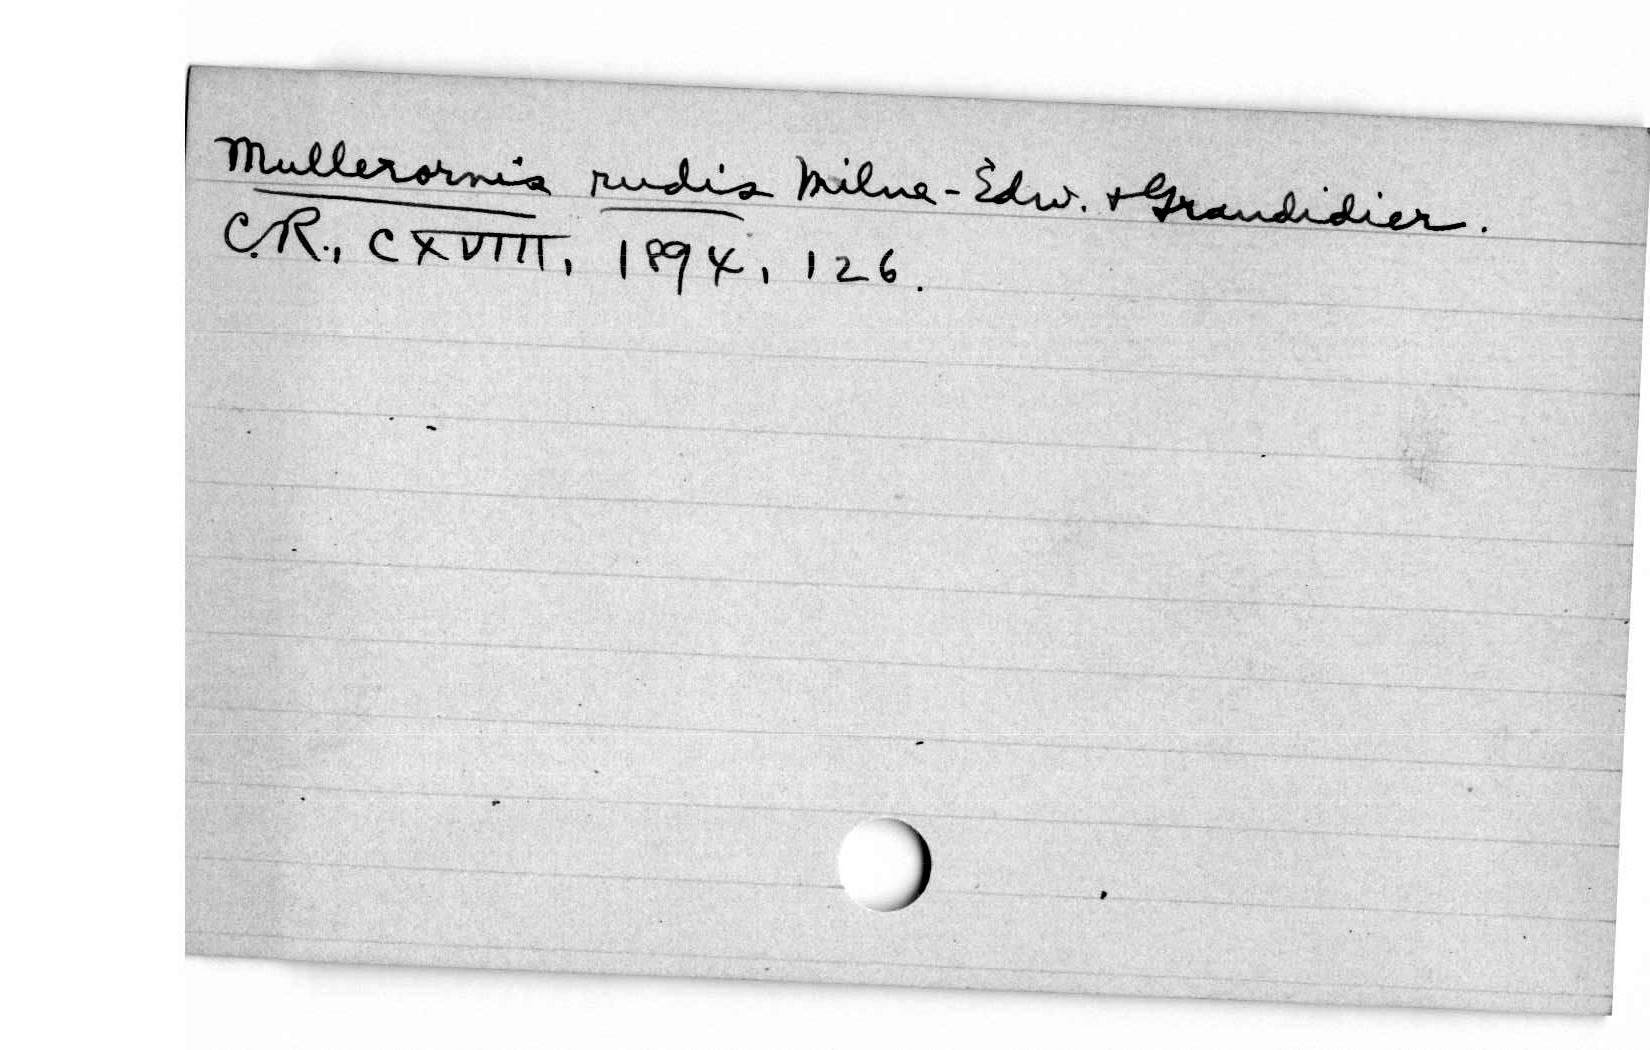 Mullerornis rudis Milne-Edw. & Grandidier.
C.R., CXVIII, 1894, 126.